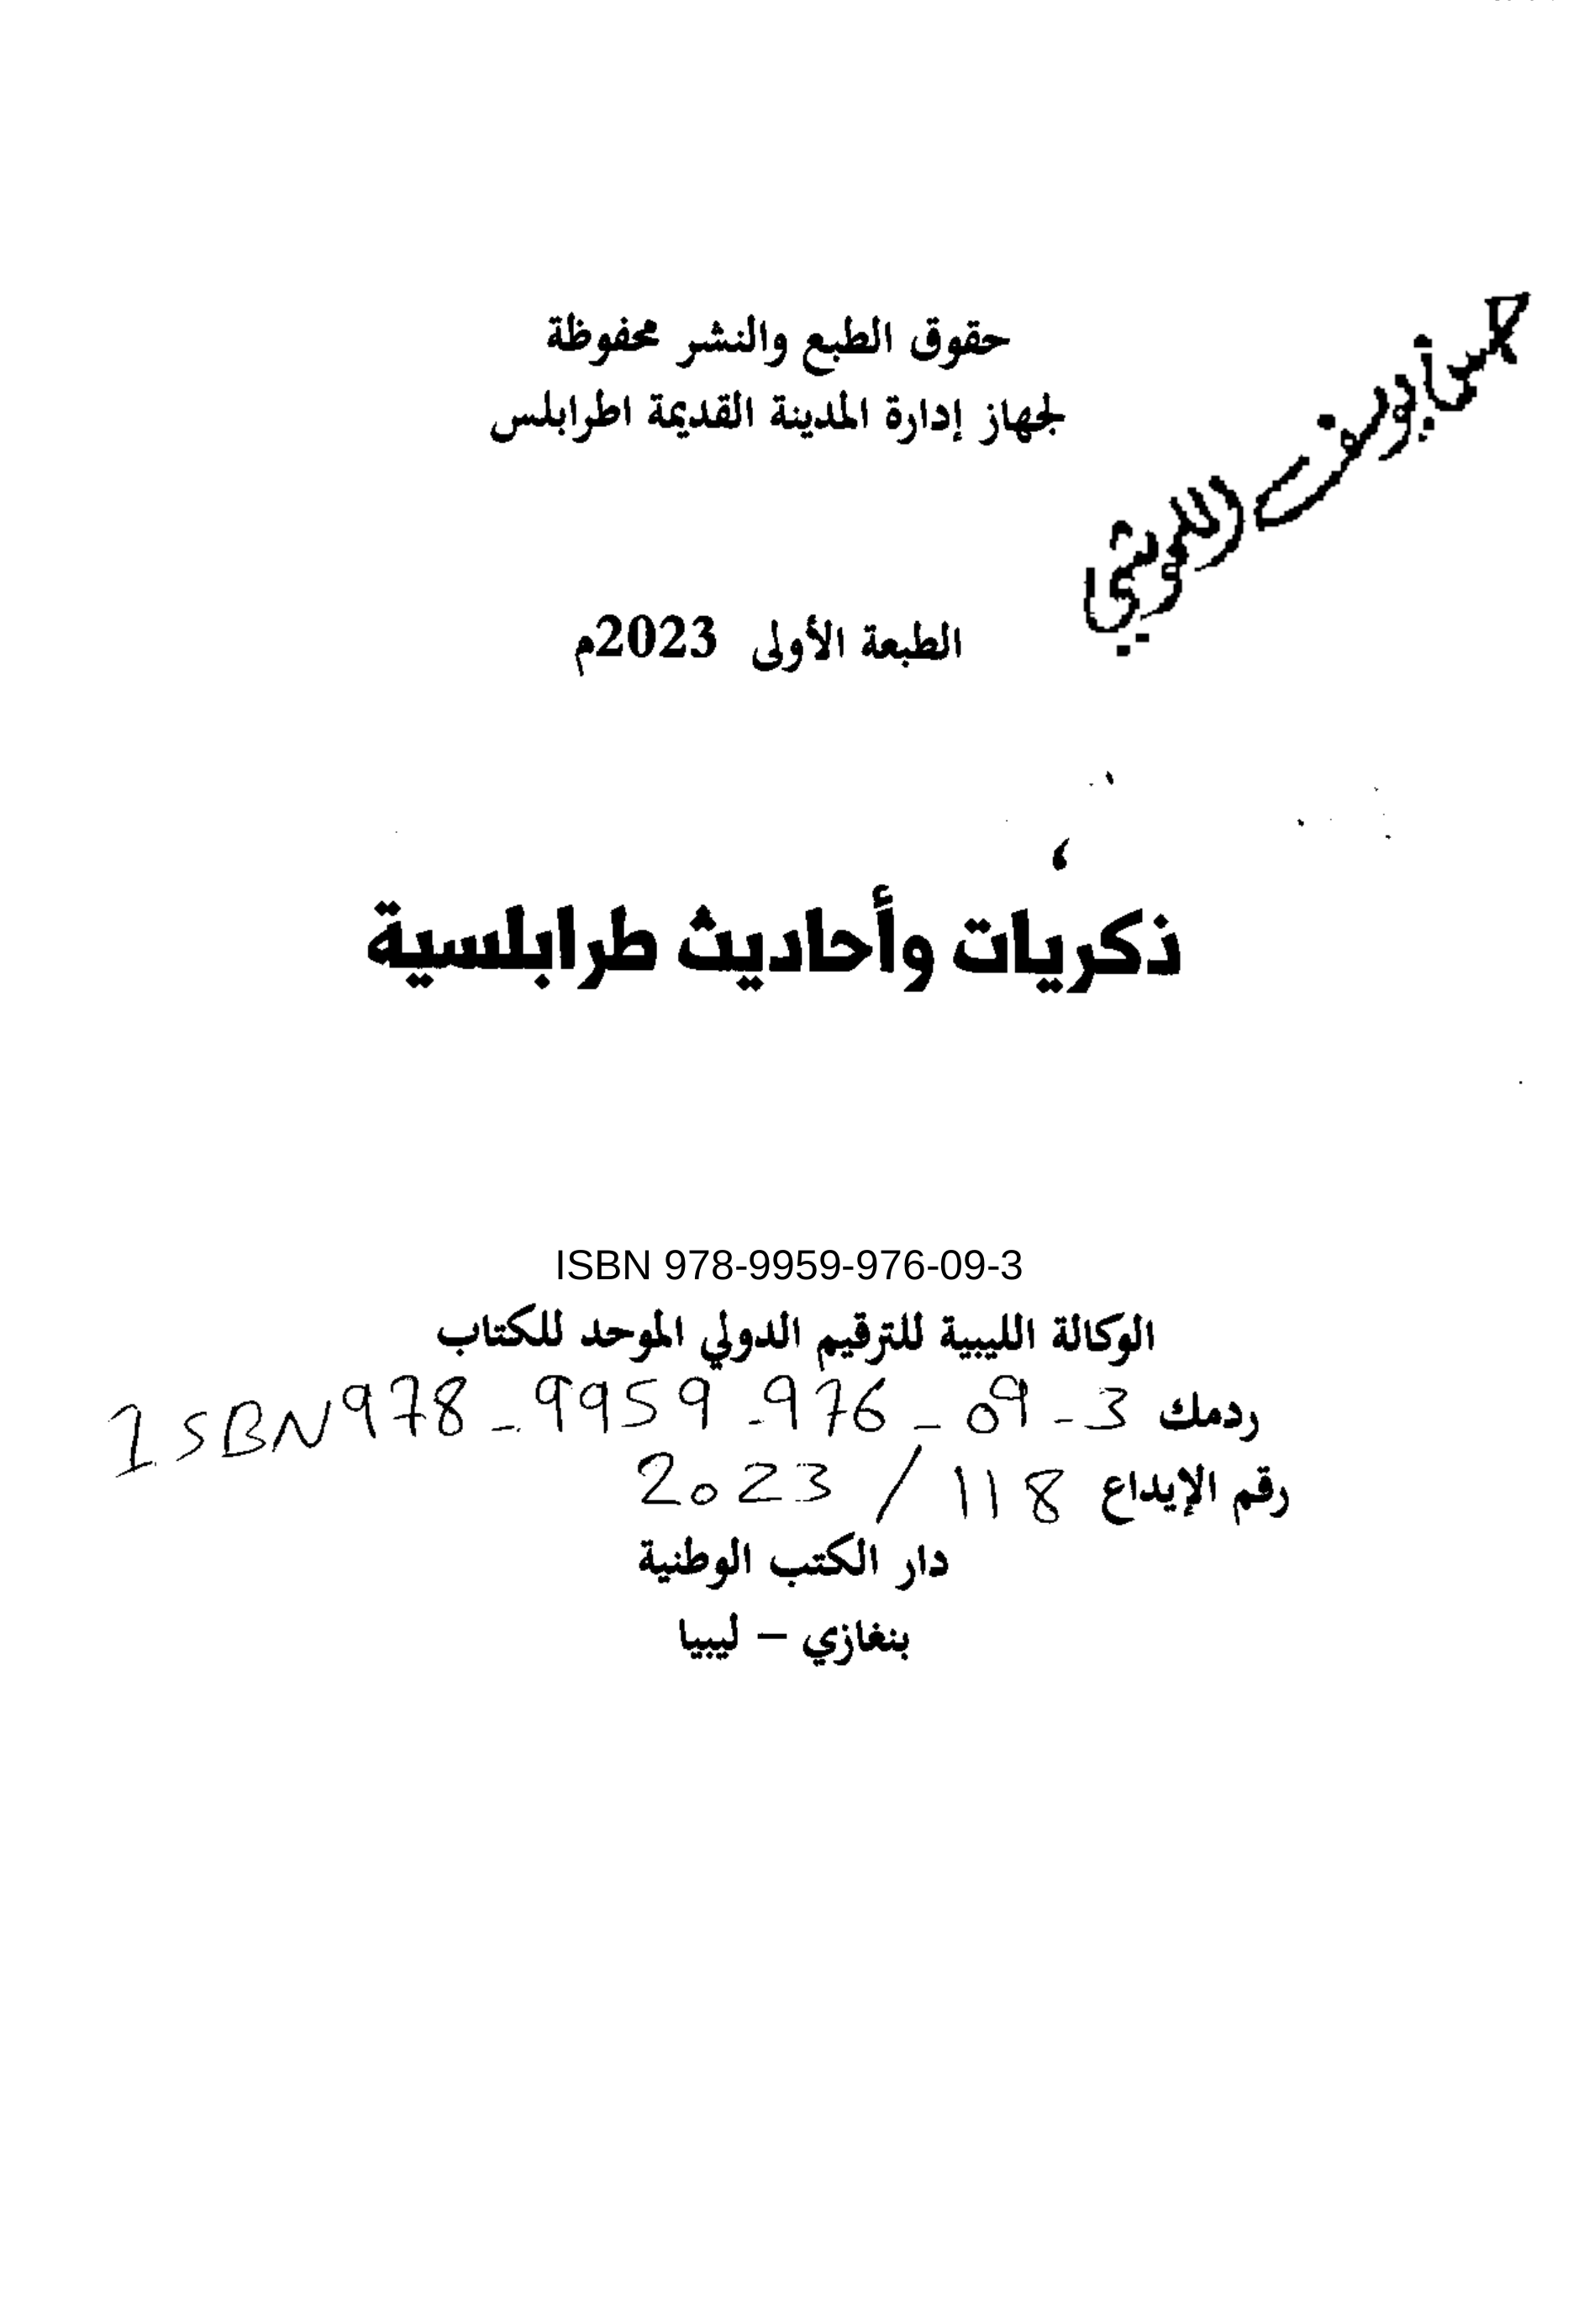 حقوق الطبع والنشر محفوظة
لجهاز إدارة المدينة القديمة اطرابلس
الطبعة الأولى 2023م
ذكريات وأحاديث طرابلسية
ISBN 978-9959-976-09-3
الوكالة الليبية للترقيم الدولي الموحد للكتاب
ردمك ISBN 978-9959-976-09-3
رقم الإيداع 118 / 2023
دار الكتب الوطنية
بنغازي – ليبيا